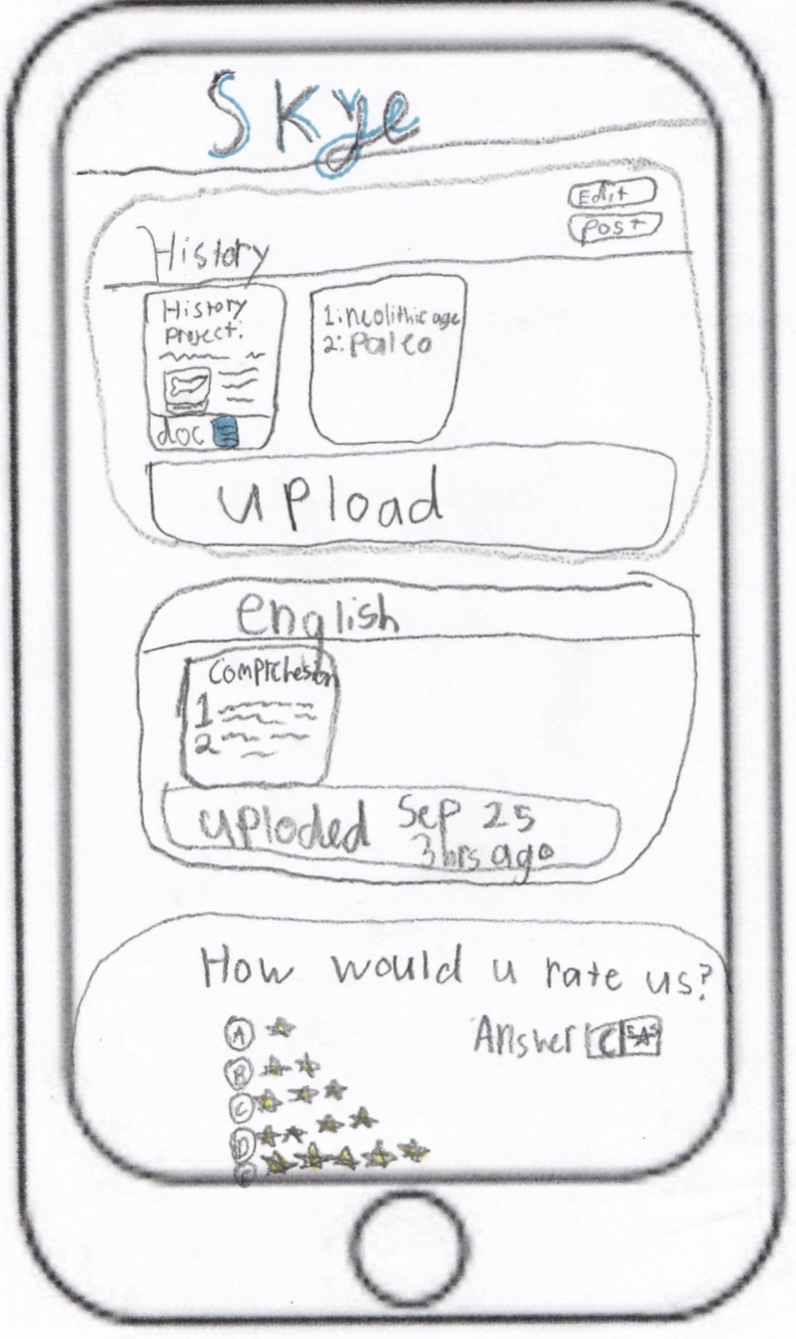 Skye
Edit
Post
History
History
Project:
1:neolithic age
2: paleo
doc
upload
english
Comprehesion
1
2
uploded Sep 25
3 hrs ago
How would u rate us?
A
Answer C
B
C
D
E